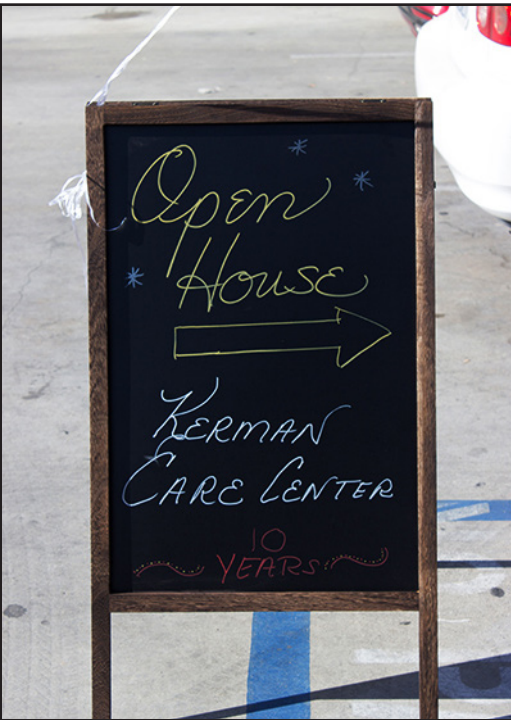 Open
House
KERMAN
CARE CENTER
10
YEARS